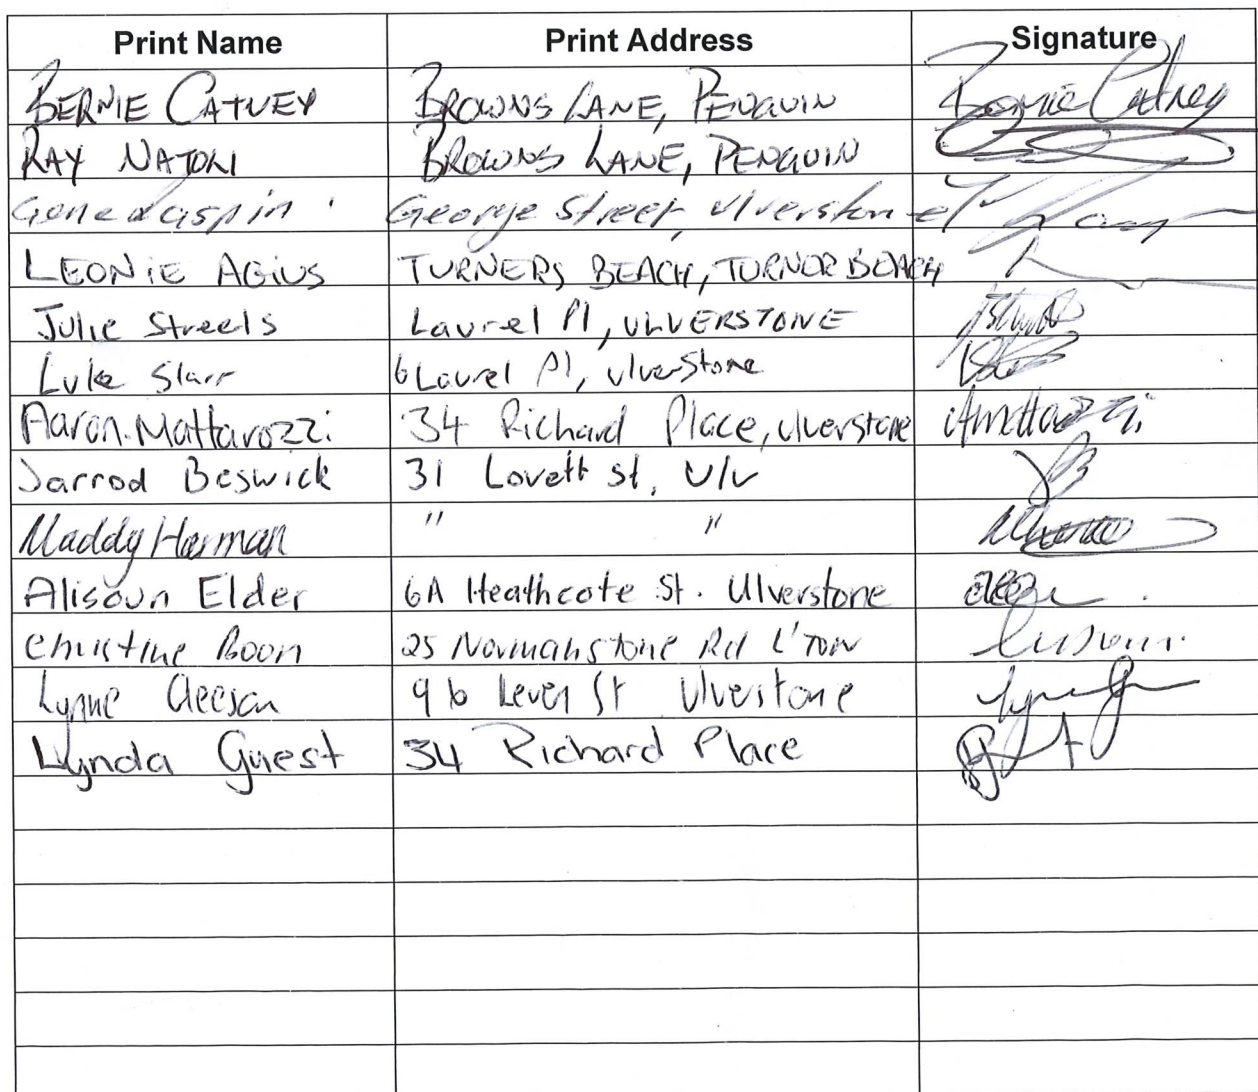 Print Name Print Address Signature
BERNIE CATNEY BROWNS LANE, PENGUIN Bernie Catney
RAY NATOLI BROWNS LANE, PENGUIN
George Street, Ulverstone
LEONIE AGIUS TURNERS BEACH, TURNOR BEACH
Julie Streets Laurel Pl, ULVERSTONE
Luke Starr 6 Laurel Pl, Ulverstone
Aaron.Mattarozzi 34 Richard Place, Ulverstone
Jarrod Beswick 31 Lovett St, Ulv
Maddy Harman " "
Alisoun Elder 6A Heathcote St. Ulverstone
Christine Boon 25 Normanstone Rd L'TON
Lynne Gleeson 9b Leven St Ulverstone
Lynda Guest 34 Richard Place